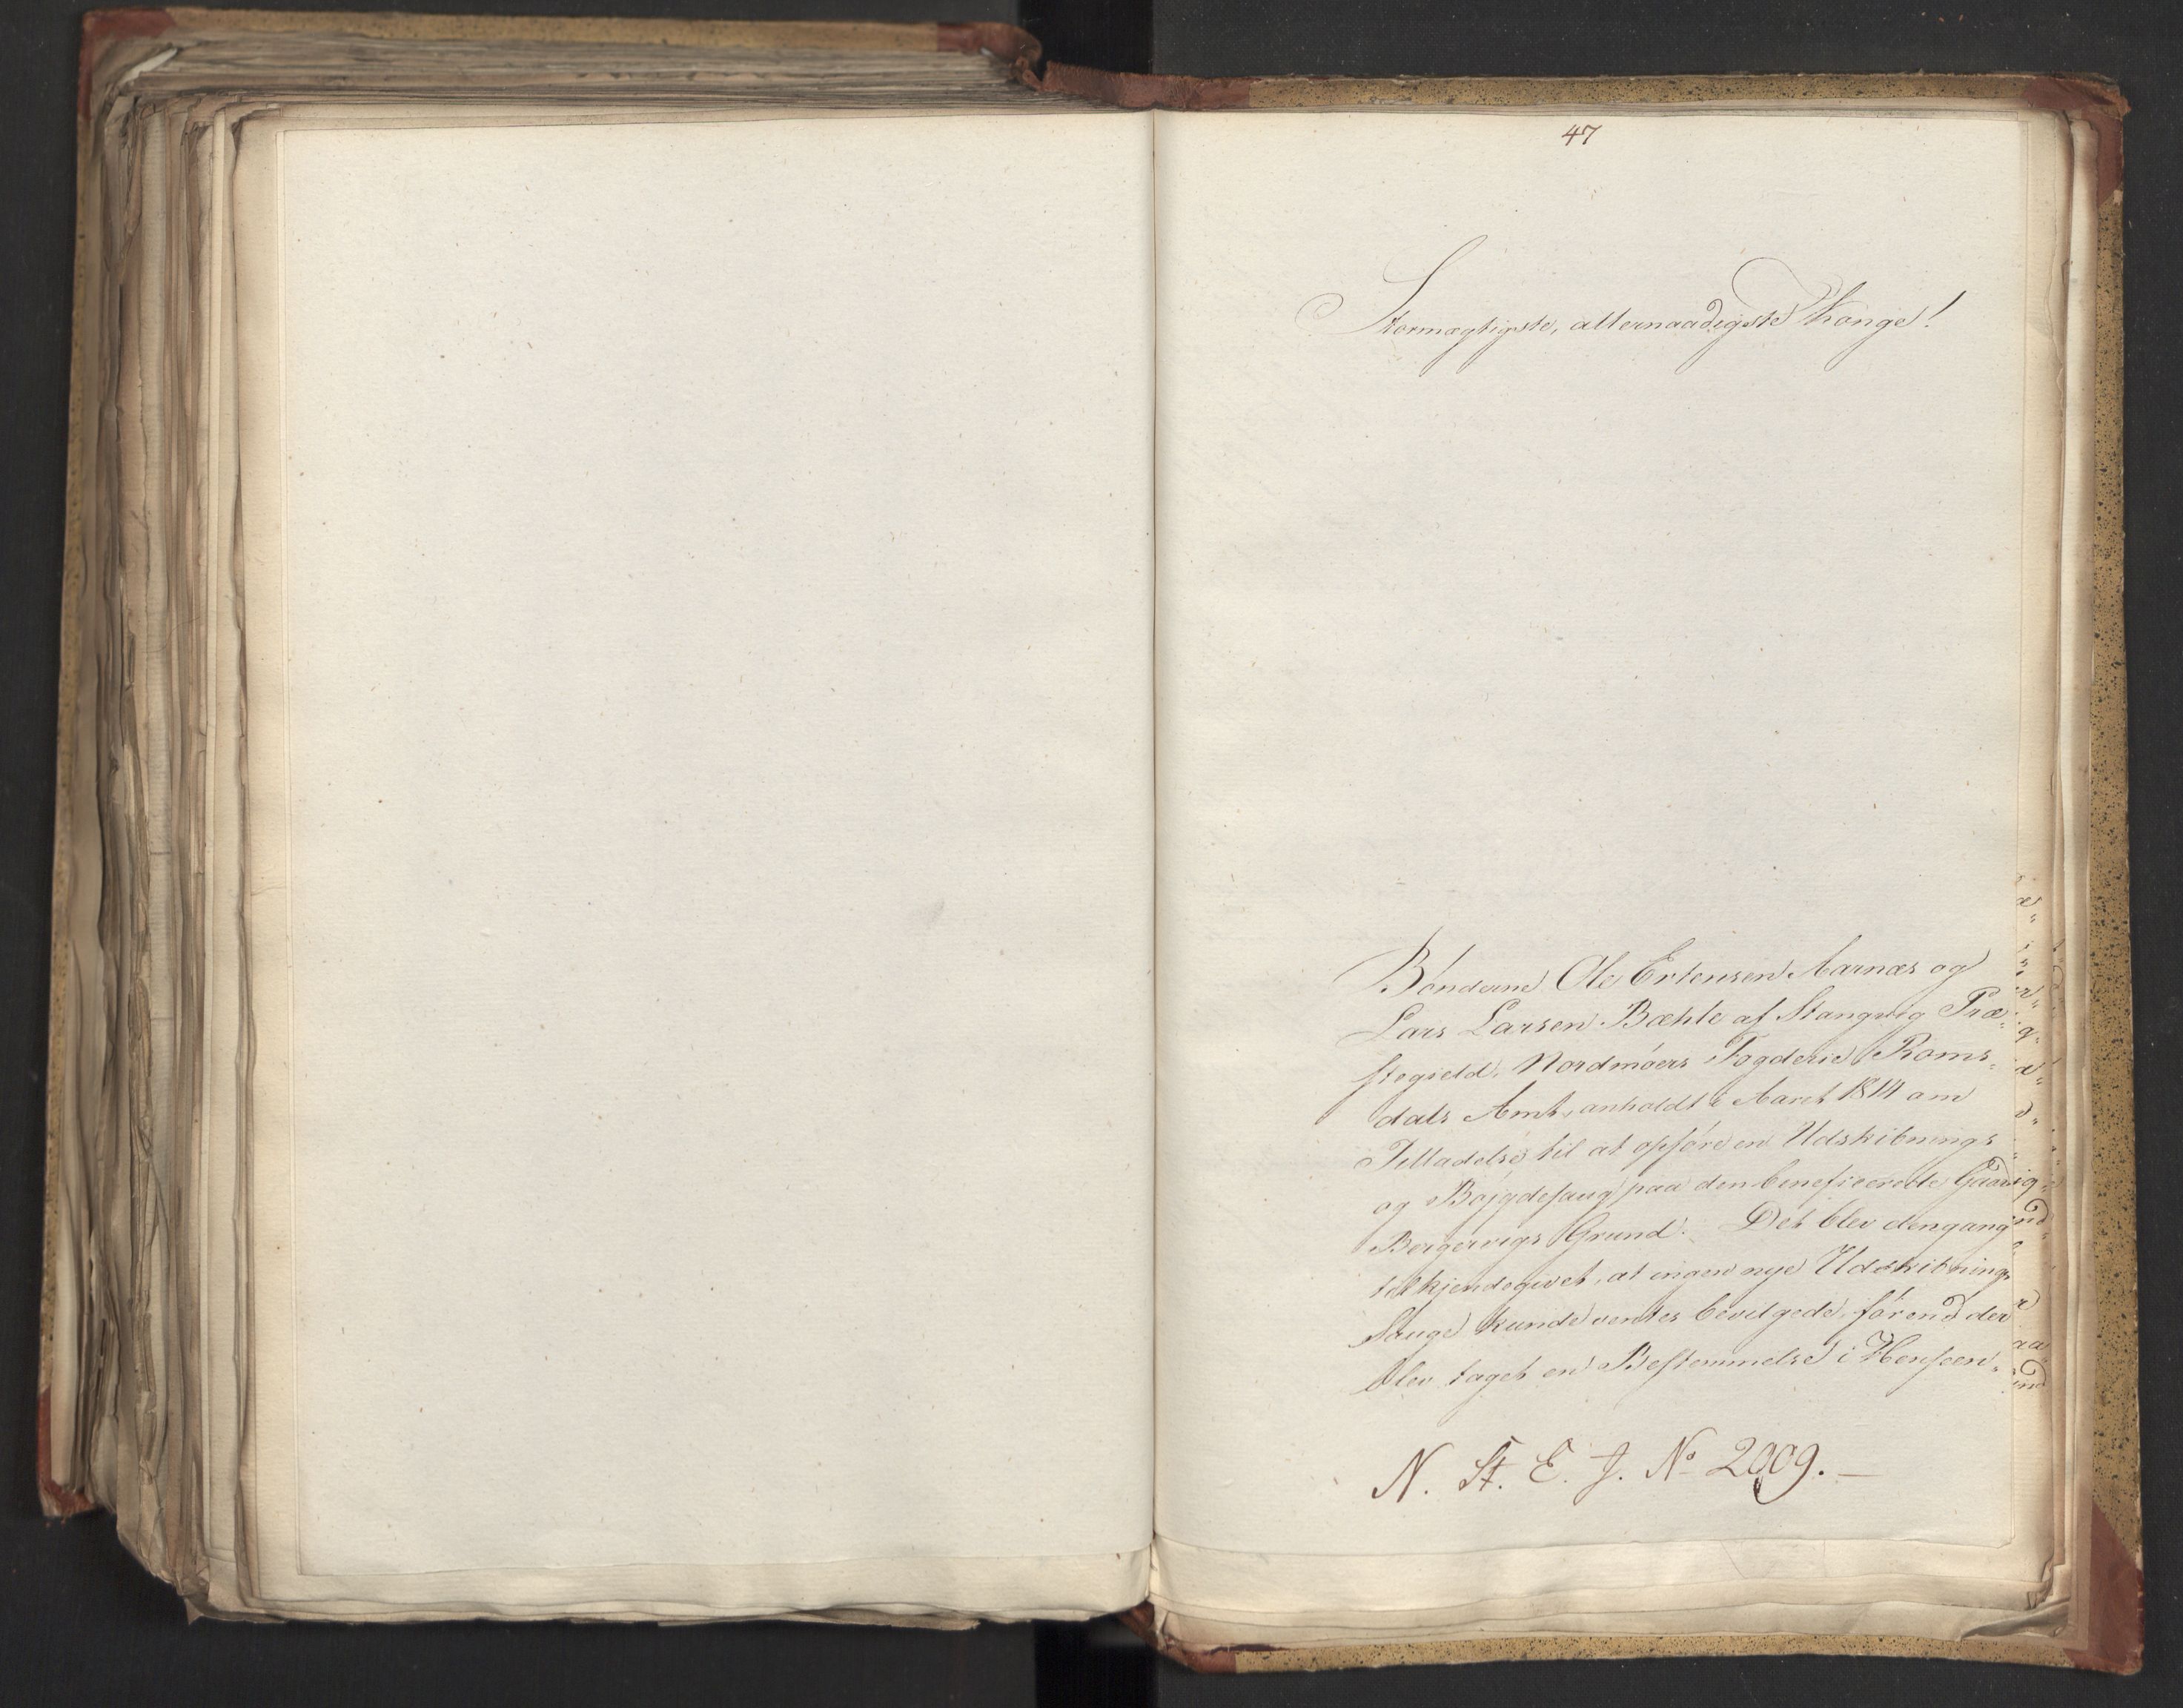 47
Stormægtigste, allernaadigste Konge!
Bönderne Ole Ertensen Aarnæs og
Lars Larsen Bæhle af Stangvig Præ-
stegield, Nordmöers Fogderie, Roms-
dals Amt, anholdt i Aaret 1814 om
Tilladelse til at opföre en Udskibnings
og Böjgdesaug paa den beneficerede Gaard
Bergervigs Grund. Det blev dengang
tilkjendegivet, at ingen nye Udskibnings
Sauge kunde ventes bevilgede, förend der
blev taget en Bestemmelse i Henseen-
N. St. E. J. No 2009.-